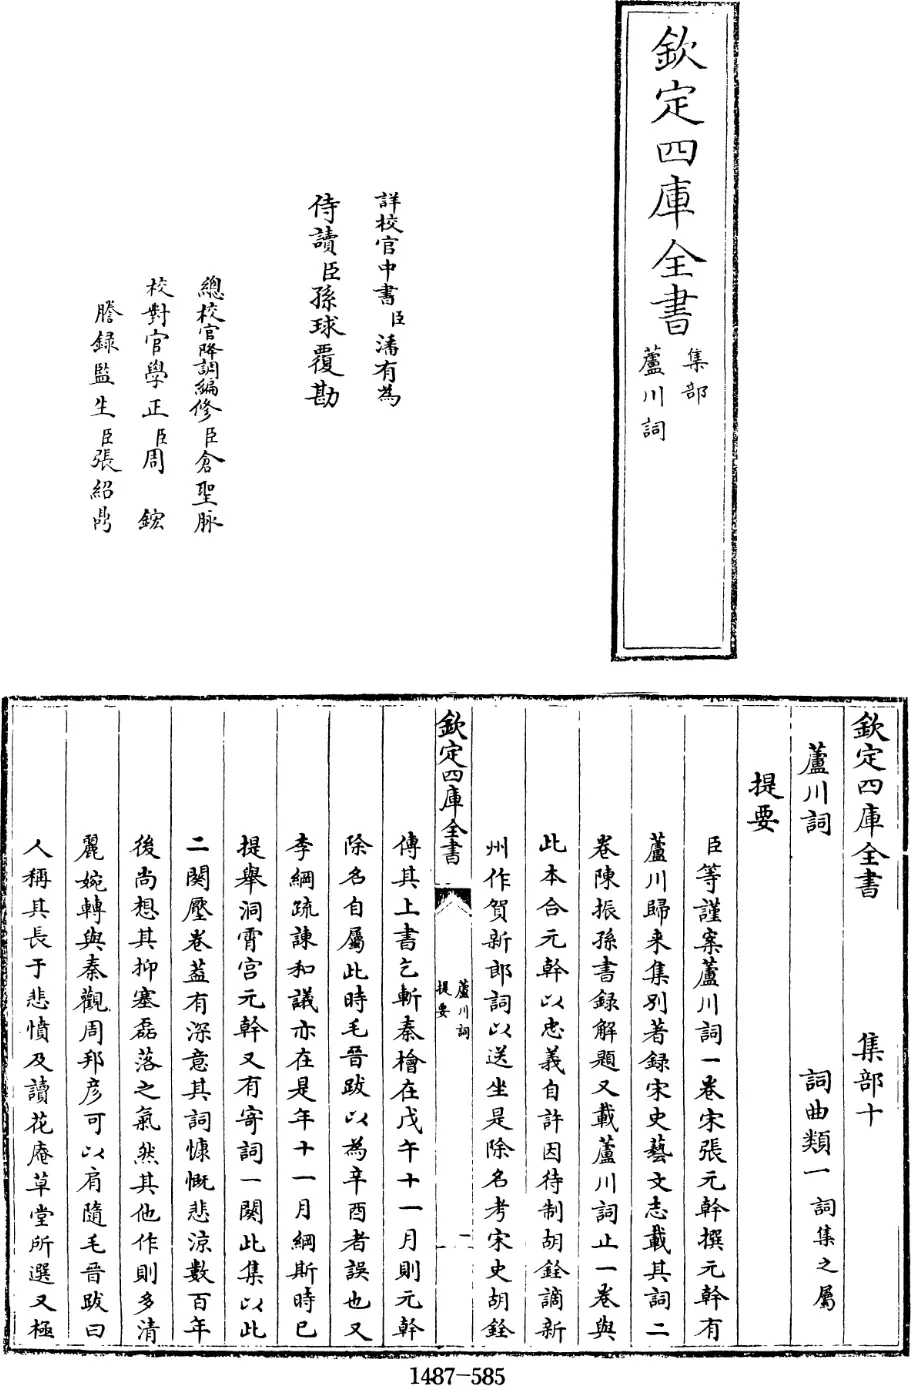 欽定四庫全書
集部
蘆川詞
詳校官中書臣潘有為
侍讀臣孫球覆勘
總校官降調編修臣倉聖脉
校對官學正臣周鋐
謄録監生臣張紹
欽定四庫全書 集部十
蘆川詞 詞曲類一 詞集之屬
提要
臣等謹案蘆川詞一卷宋張元幹撰元幹有
蘆川歸来集别著録宋史藝文志載其詞二
卷陳振孫書録解題又載蘆川詞止一卷與
此本合元幹以忠義自許因待制胡銓謫新
州作賀新郎詞以送坐是除名考宋史胡銓
欽定四庫全書
蘆川詞
提要
二
傳其上書乞斬秦檜在戊午十一月則元幹
除名自屬此時毛晉跋以為辛酉者誤也又
李綱疏諫和議亦在是年十一月綱斯時已
提舉洞霄宫元幹又有寄詞一闋此集以此
二闋壓卷葢有深意其詞慷慨悲涼數百年
後尚想其抑塞磊落之氣然其他作則多清
麗婉轉與秦觀周邦彦可以肩隨毛晉跋曰
人稱其長于悲憤及讀花庵草堂所選又極
1487-585